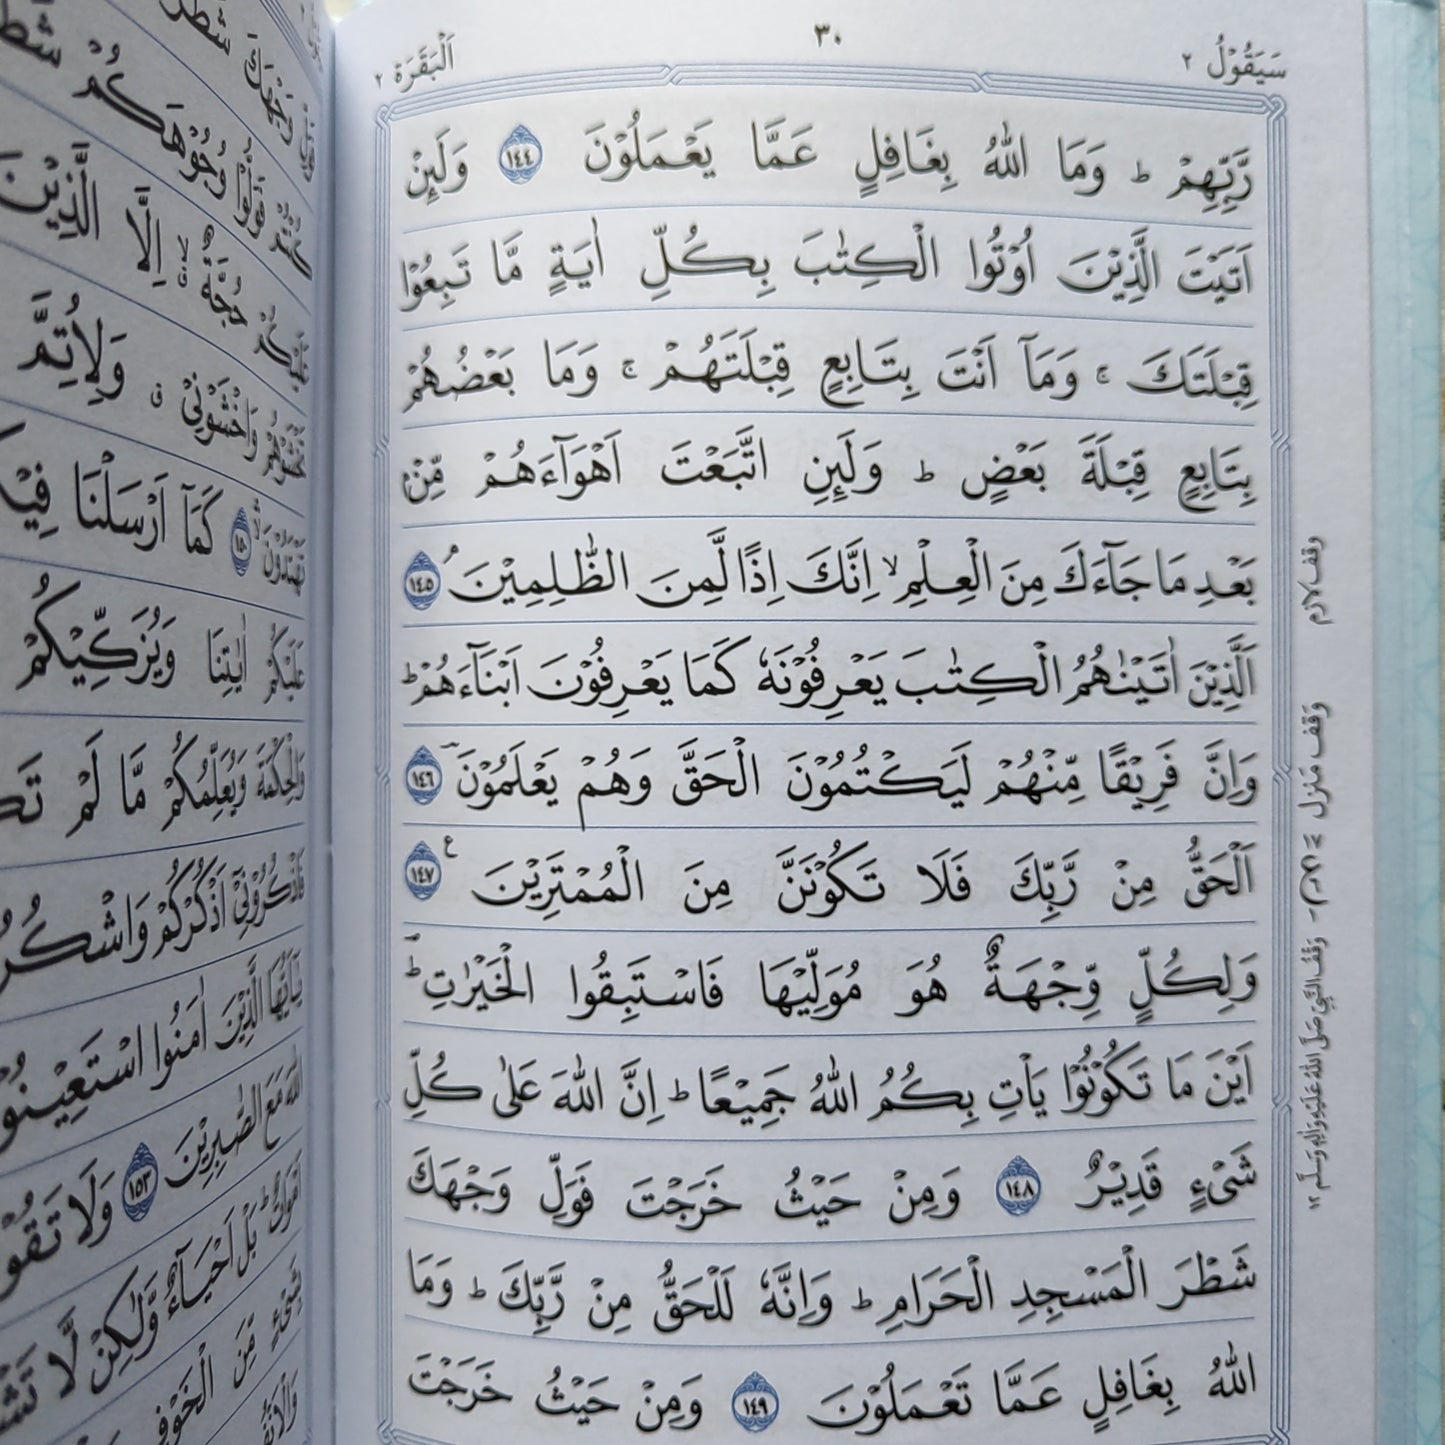 سَيَقُوْلُ ٢
٣٠
اَلْبَقَرَة ٢
رَّبِّهِمْ ؕ وَمَا اللّٰهُ بِغَافِلٍ عَمَّا يَعْمَلُوْنَ ١٤٤ وَلَئِنْ
اَتَيْتَ الَّذِيْنَ اُوْتُوا الْكِتٰبَ بِكُلِّ اٰيَةٍ مَّا تَبِعُوْا
قِبْلَتَكَ ۚ وَمَاۤ اَنْتَ بِتَابِعٍ قِبْلَتَهُمْ ۚ وَمَا بَعْضُهُمْ
بِتَابِعٍ قِبْلَةَ بَعْضٍ ؕ وَلَئِنِ اتَّبَعْتَ اَهْوَآءَهُمْ مِّنْۢ
بَعْدِ مَا جَآءَكَ مِنَ الْعِلْمِ ۙ اِنَّكَ اِذًا لَّمِنَ الظّٰلِمِيْنَ ۘ ١٤٥
اَلَّذِيْنَ اٰتَيْنٰهُمُ الْكِتٰبَ يَعْرِفُوْنَهٗ كَمَا يَعْرِفُوْنَ اَبْنَآءَهُمْ ؕ
وَاِنَّ فَرِيْقًا مِّنْهُمْ لَيَكْتُمُوْنَ الْحَقَّ وَهُمْ يَعْلَمُوْنَ ١٤٦
اَلْحَقُّ مِنْ رَّبِّكَ فَلَا تَكُوْنَنَّ مِنَ الْمُمْتَرِيْنَ ١٤٧ ع
وَلِكُلٍّ وِّجْهَةٌ هُوَ مُوَلِّيْهَا فَاسْتَبِقُوا الْخَيْرٰتِ ؕ
اَيْنَ مَا تَكُوْنُوْا يَاْتِ بِكُمُ اللّٰهُ جَمِيْعًا ؕ اِنَّ اللّٰهَ عَلٰى كُلِّ
شَىْءٍ قَدِيْرٌ ١٤٨ وَمِنْ حَيْثُ خَرَجْتَ فَوَلِّ وَجْهَكَ
شَطْرَ الْمَسْجِدِ الْحَرَامِ ؕ وَاِنَّهٗ لَلْحَقُّ مِنْ رَّبِّكَ ؕ وَمَا
اللّٰهُ بِغَافِلٍ عَمَّا تَعْمَلُوْنَ ١٤٩ وَمِنْ حَيْثُ خَرَجْتَ
وقف لازم
وَقف مَنزل
وَقْفُ النَّبِيِّ صَلَّى اللّٰهُ عَلَيْهِ وَاٰلِهٖ وَسَلَّم ١٢
وَجْهَكَ شَطْرَ
كُنْتُمْ فَوَلُّوْا وُجُوْهَكُمْ شَطْرَ
عَلَيْكُمْ حُجَّةٌ ۙ اِلَّا الَّذِيْنَ
تَخْشَوْهُمْ وَاخْشَوْنِيْ ۗ وَلِاُتِمَّ
تَهْتَدُوْنَ ۙ ١٥٠ كَمَاۤ اَرْسَلْنَا
عَلَيْكُمْ اٰيٰتِنَا وَيُزَكِّيْكُمْ
وَالْحِكْمَةَ وَيُعَلِّمُكُمْ مَّا لَمْ
فَاذْكُرُوْنِيْۤ اَذْكُرْكُمْ
يٰۤاَيُّهَا الَّذِيْنَ اٰمَنُوا
اللّٰهَ مَعَ الصّٰبِرِيْنَ ١٥٣ وَلَا
اَمْوَاتٌ ؕ بَلْ اَحْيَآءٌ وَّلٰكِنْ لَّا
بِشَىْءٍ مِّنَ الْخَوْفِ